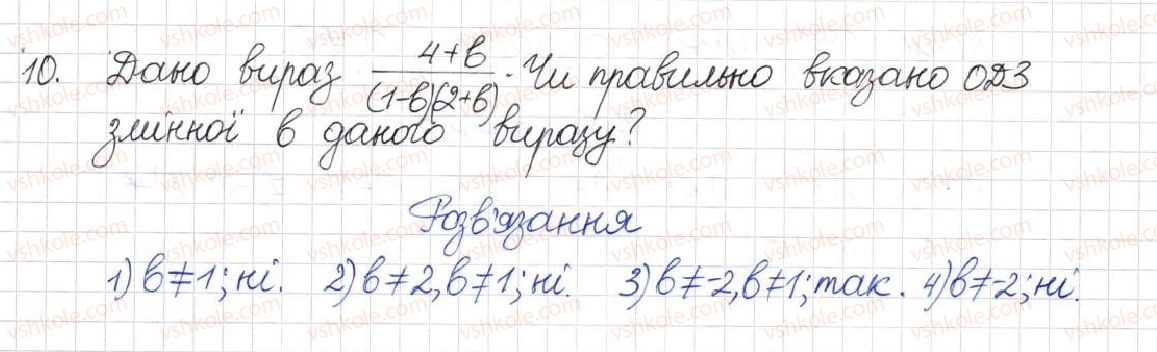 10. Дано вираз (4+в)/((1-в)(2+в)). Чи правильно вказано ОДЗ
змінної в даного виразу?
Розв'язання
1) в≠1; ні. 2) в≠2, в≠1; ні. 3) в≠-2, в≠1; так. 4) в≠-2; ні.